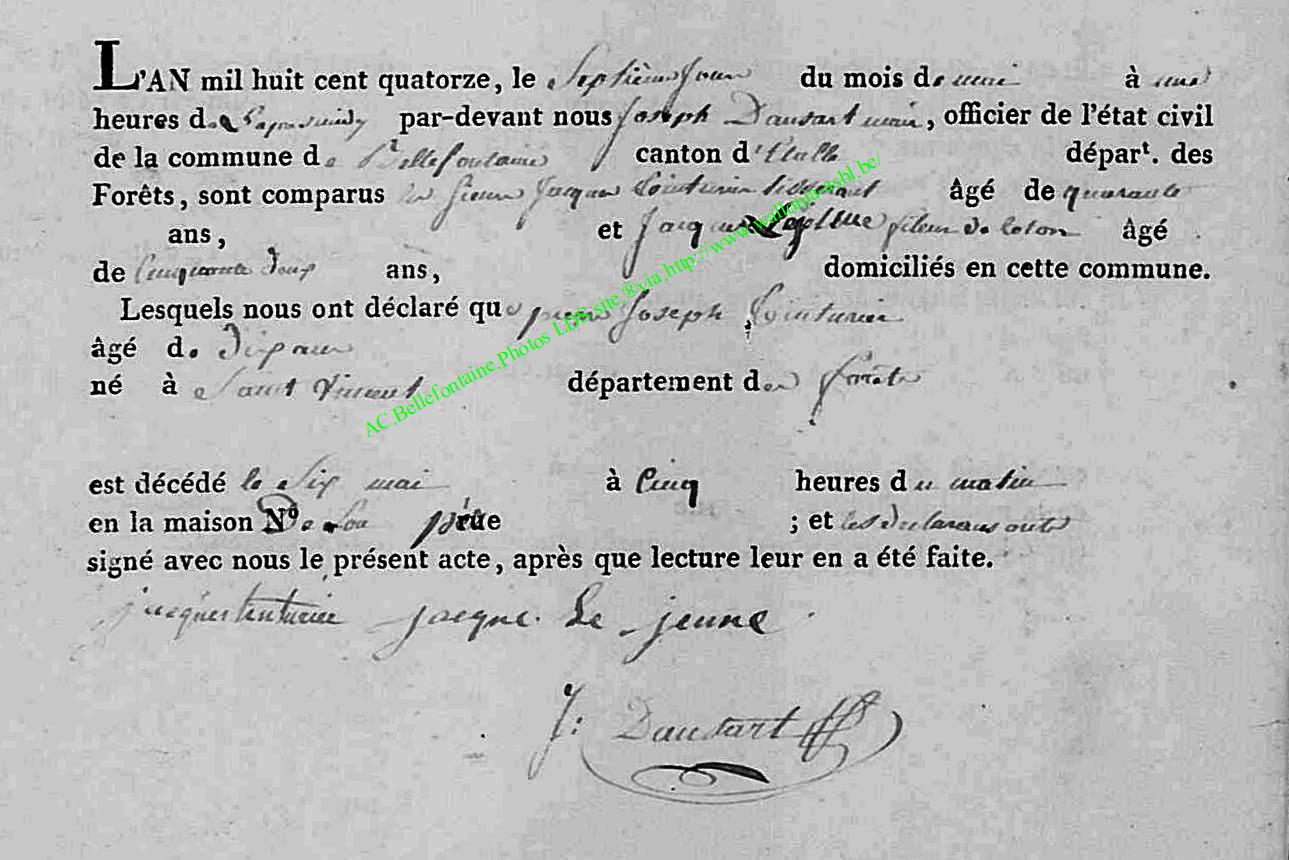 L'AN mil huit cent quatorze, le Septième Jour du mois de mai à une
heures de l'apresmidy par-devant nous Joseph Dausart mair, officier de l'état civil
de la commune de Bellefontaine canton d'Etalle départ. des
Forêts, sont comparus les sieurs Jacques Tinturier tisserant âgé de quarante
ans, et Jacques Lejeune fileur de coton âgé
de Cinquante Deux ans, domiciliés en cette commune.
Lesquels nous ont déclaré que Joseph Tinturier
âgé de Dix ans
né à Saint Vincent département des forêts
est décédé le Six mai à Cinq heures du matin
en la maison N° de son père rue ; et les declarans ont
signé avec nous le présent acte, après que lecture leur en a été faite.
jacques tinturier jacque le jeune
J: Dausart
AC.Bellefontaine.Photos LDS site &via http://www.walloniasbl.be/